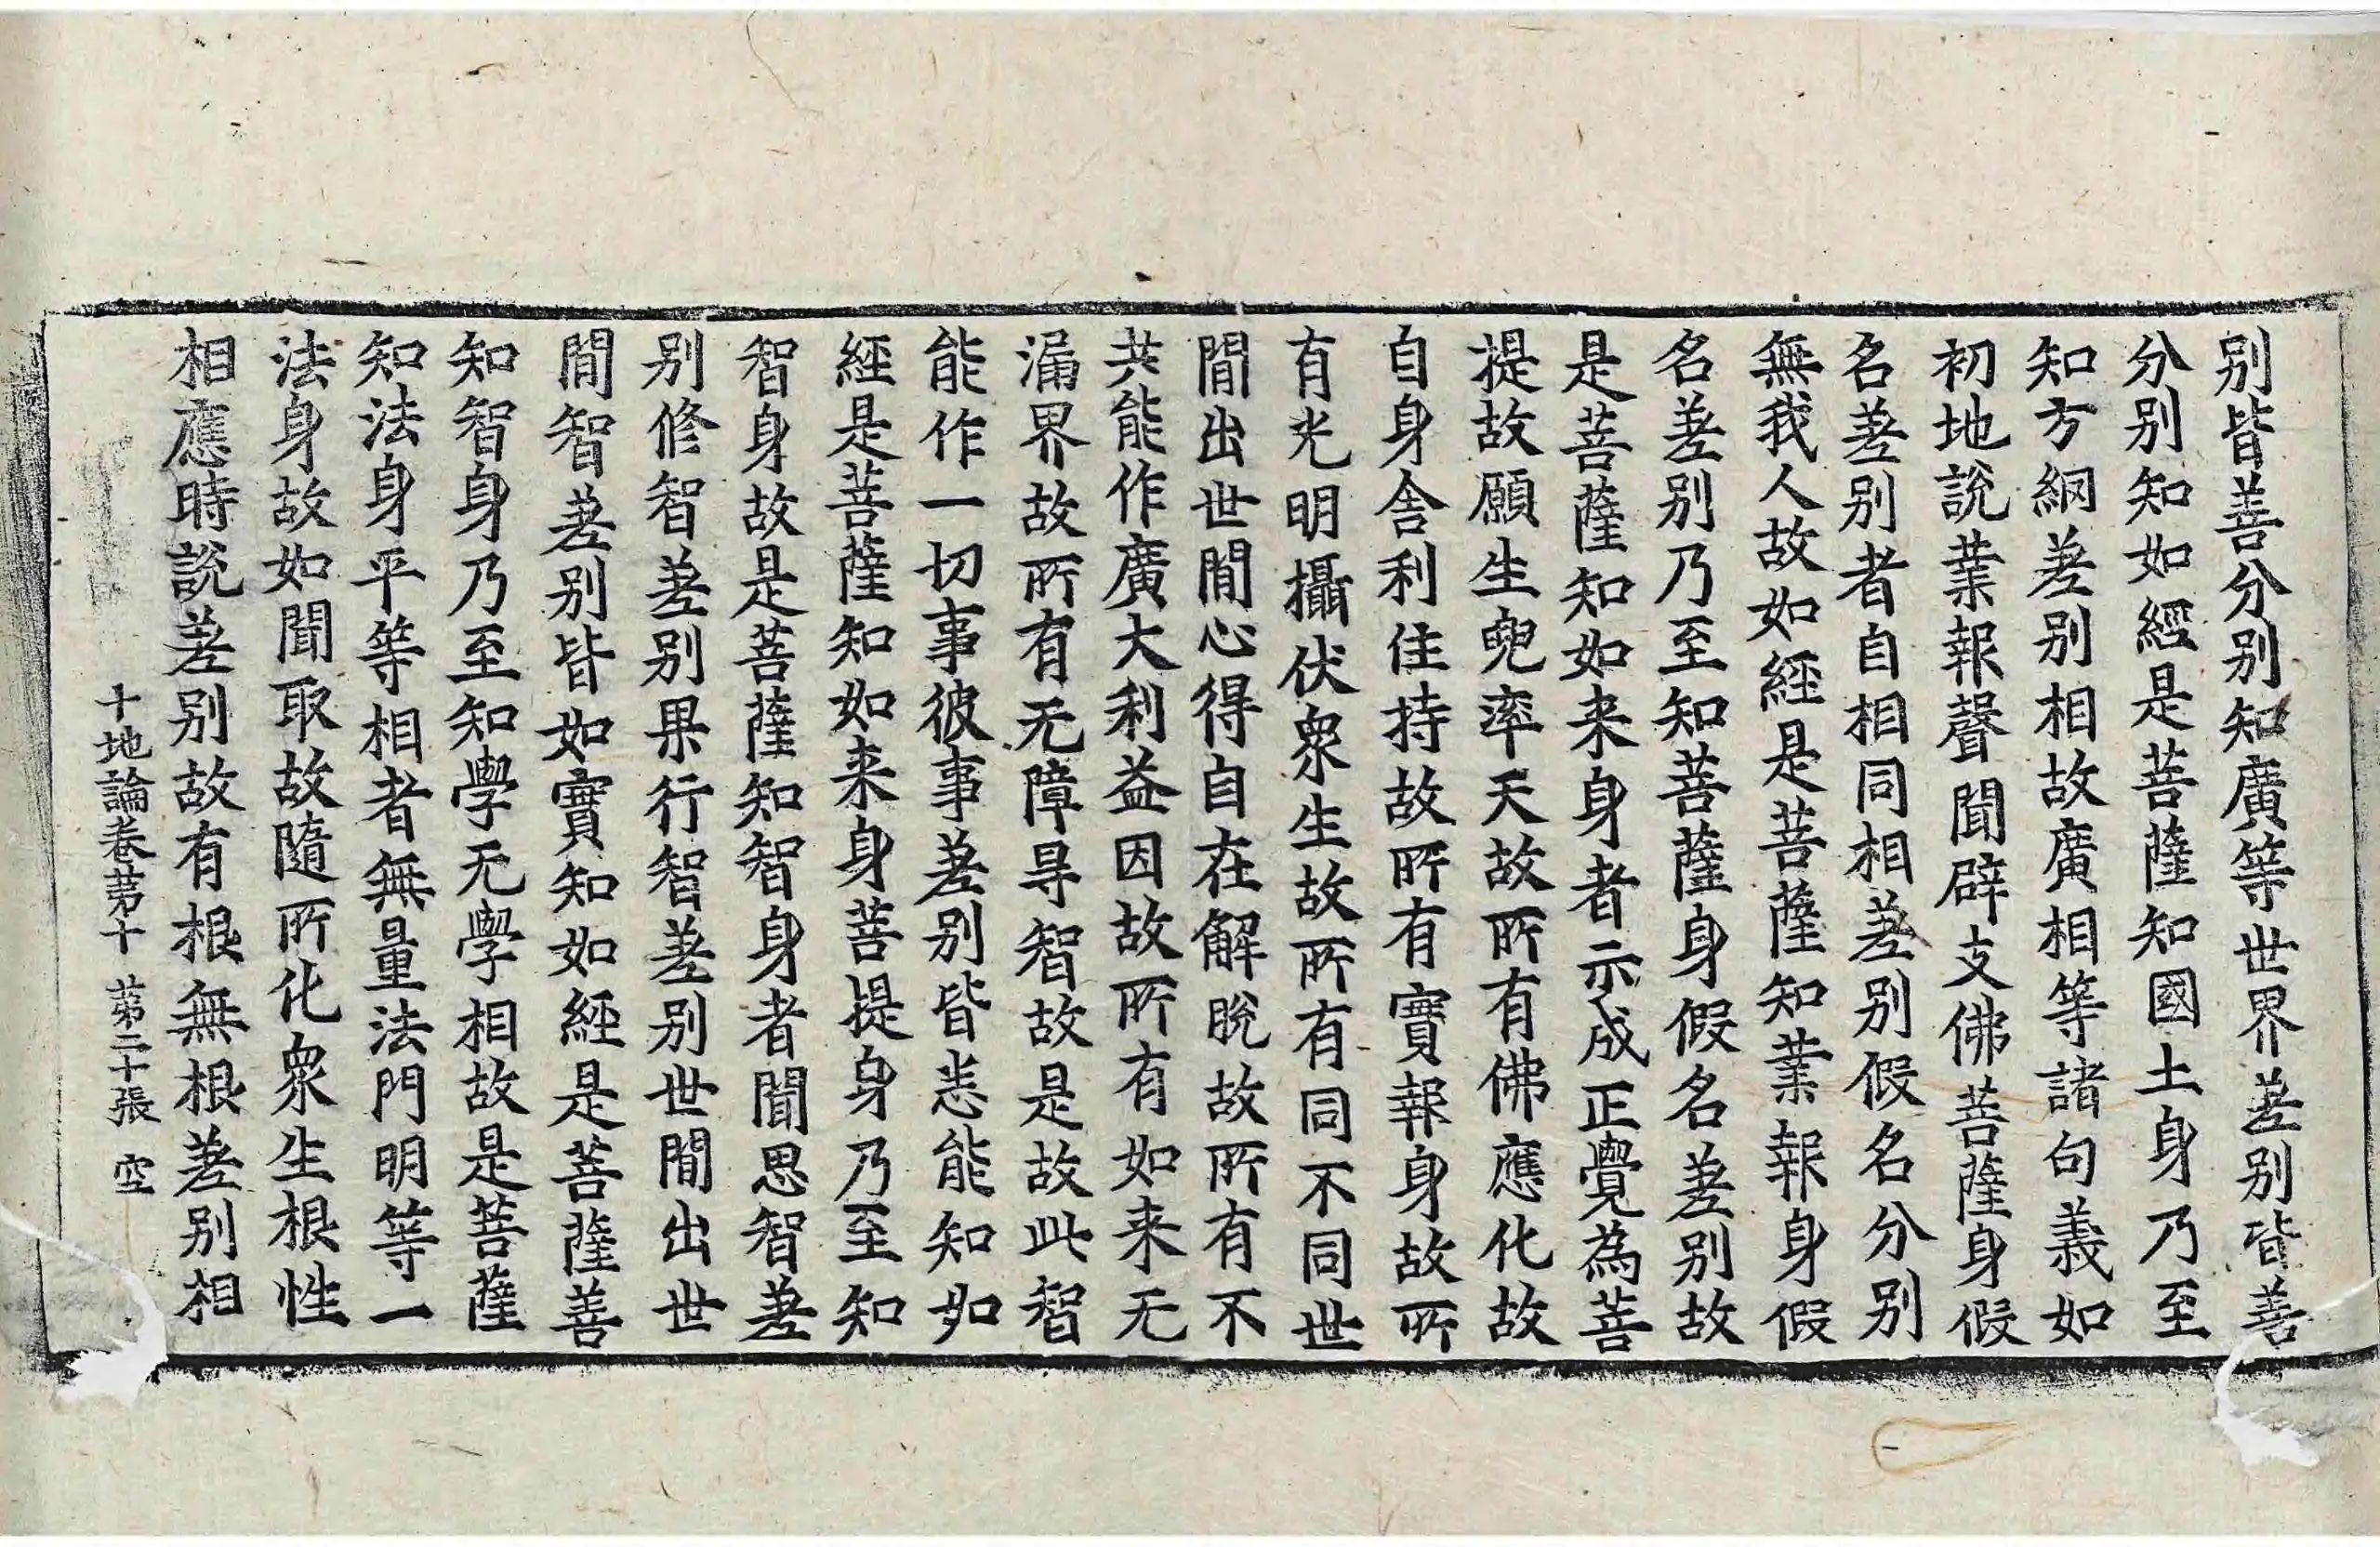 别皆善分别知廣等世界差别皆善
分别知如經是菩薩知國土身乃至
知方網差别相故廣相等諸句義如
初地說業報聲聞辟支佛菩薩身假
名差别者自相同相差别假名分别
無我人故如經是菩薩知業報身假
名差别乃至知菩薩身假名差别故
是菩薩知如来身者示成正覺為菩
提故願生兜率天故所有佛應化故
自身舍利住持故所有實報身故所
有光明攝伏衆生故所有同不同世
間出世間心得自在解脫故所有不
共能作廣大利益因故所有如来无
漏界故所有无障㝵智故是故此智
能作一切事彼事差别皆悉能知如
經是菩薩知如来身菩提身乃至知
智身故是菩薩知智身者聞思智差
别修智差别果行智差别世間出世
間智差别皆如實知如經是菩薩善
知智身乃至知學无學相故是菩薩
知法身平等相者無量法門明等一
法身故如聞取故隨所化衆生根性
相應時說差别故有根無根差别相
十地論卷第十 第二十張 空